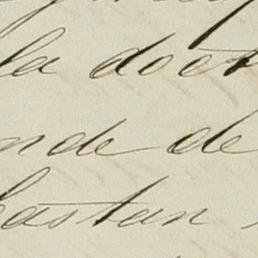 la doct
nde de
bastan